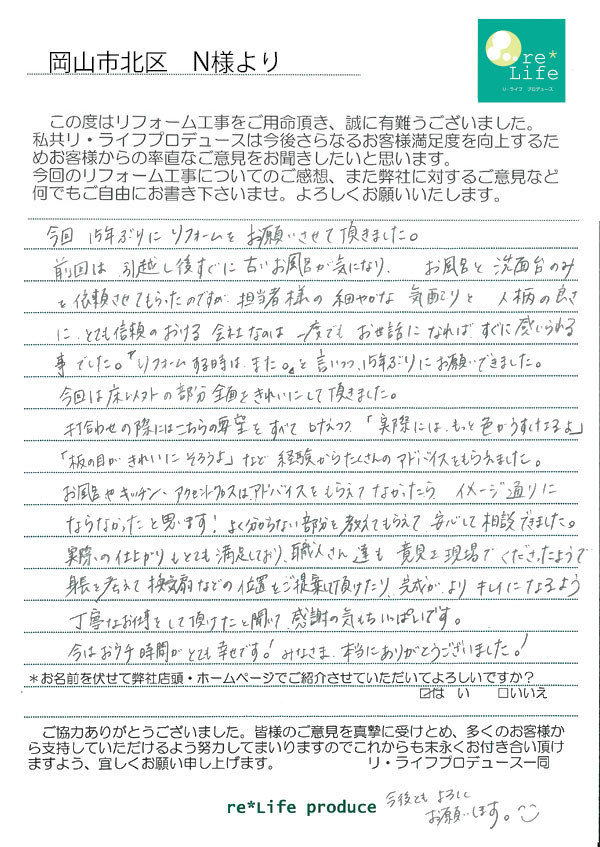 岡山市北区　N様より
re*
Life
リ・ライフ　プロデュース
この度はリフォーム工事をご用命頂き、誠に有難うございました。
私共リ・ライフプロデュースは今後さらなるお客様満足度を向上するた
めお客様からの率直なご意見をお聞きしたいと思います。
今回のリフォーム工事についてのご感想、また弊社に対するご意見など
何でもご自由にお書き下さいませ。よろしくお願いいたします。
今回 15年ぶりに リフォームを お願いさせて頂きました。
前回は 引越し後すぐに 古いお風呂が気になり、 お風呂と 洗面台のみ
を依頼させてもらったのですが 担当者様の 細やかな 気配りと 人柄の良さ
に、とても信頼のおける 会社なのは 一度でも お世話になればすぐに感じられる
事でした。"リフォームする時は、また。"と言いつつ、15年ぶりにお願いできました。
今回は床以外の部分 全面をきれいにして頂きました。
打合わせの際にはこちらの要望を すべて 叶えつつ 「実際には、もっと色がうすくなるよ」
「板の目が きれいに そろうよ」など 経験からたくさんのアドバイスをもらえました。
お風呂やキッチン、アクセントクロスはアドバイスをもらえてなかったら イメージ通りに
ならなかったと思います! よく分からない部分を教えてもらえて 安心して相談できました。
実際の仕上がりもとても満足しており、職人さん達も 意見を現場でくださったようで
身長を考えて 換気扇などの位置をご提案して頂けたり、完成が より キレイになるよう
丁寧なお仕事をして頂けたと聞いて 感謝の気もちいっぱいです。
今はおウチ時間が とても幸せです! みなさま、本当にありがとうございました!
*お名前を伏せて弊社店頭・ホームページでご紹介させていただいてよろしいですか？
☑は　い　　□いいえ
ご協力ありがとうございました。皆様のご意見を真摯に受けとめ、多くのお客様か
ら支持していただけるよう努力してまいりますのでこれからも末永くお付き合い頂け
ますよう、宜しくお願い申し上げます。　　　　リ・ライフプロデュース一同
re*Life produce
今後とも よろしく
お願いします。